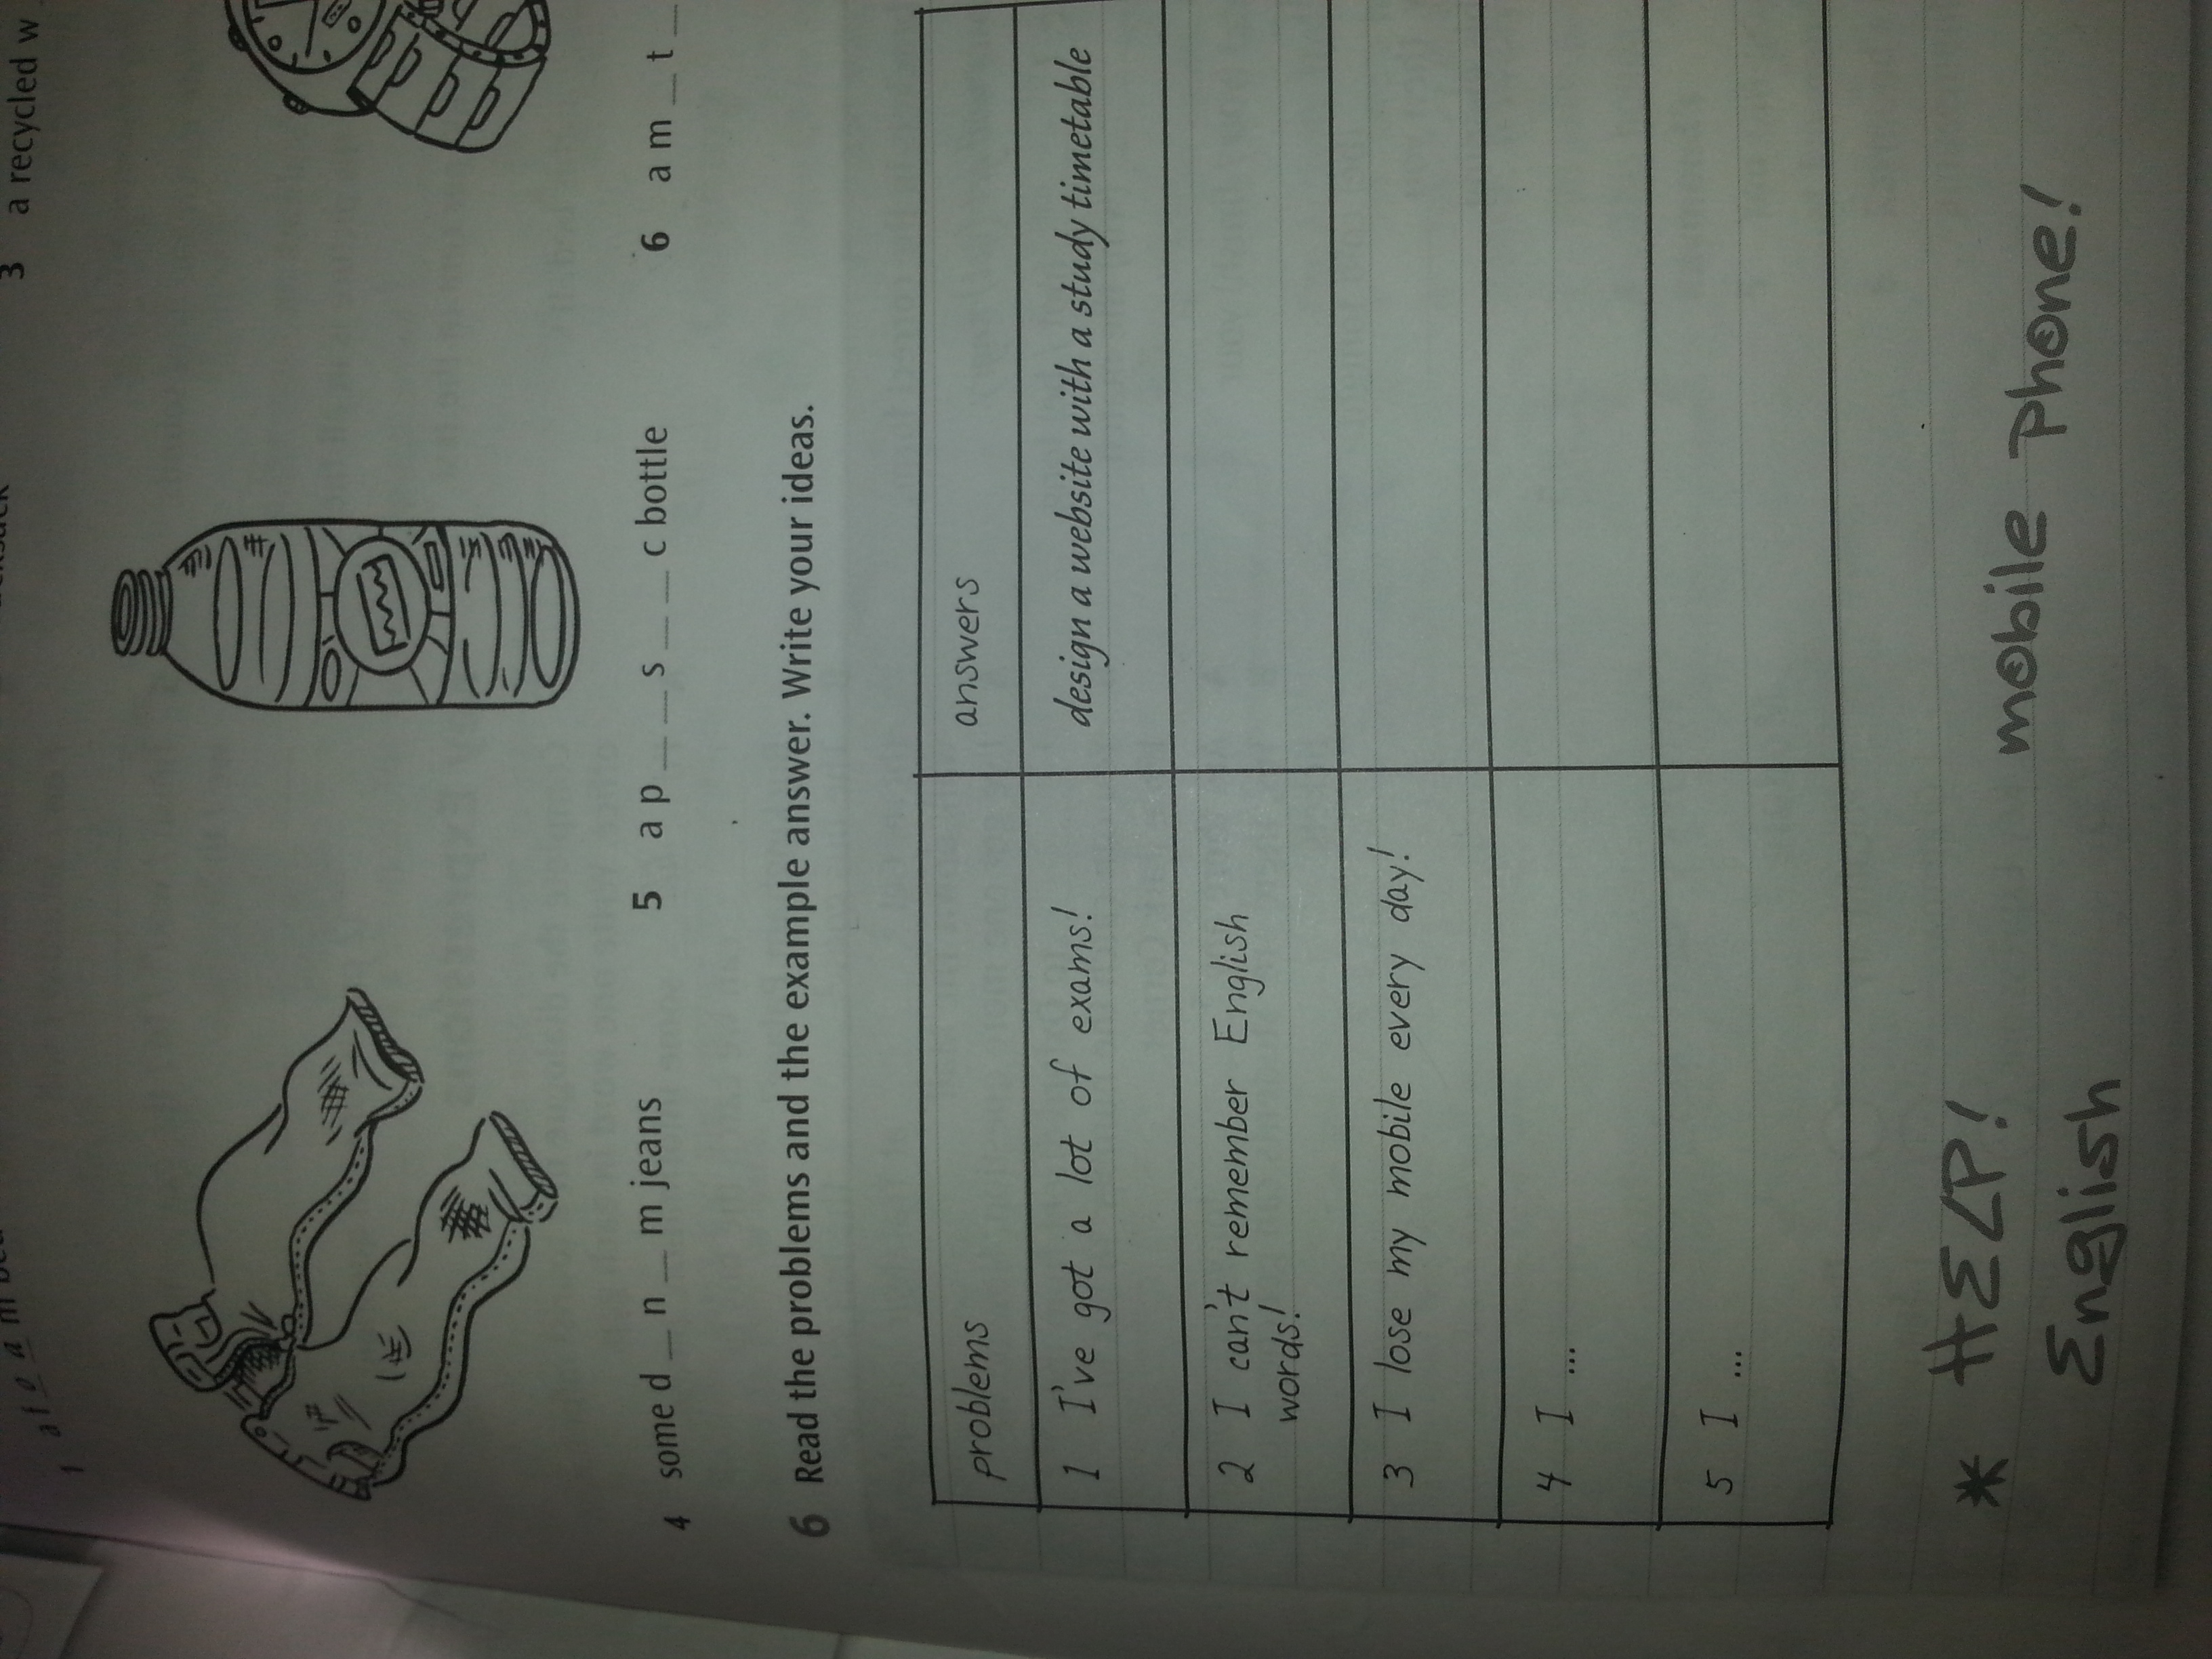 3 a recycled w
4 some d _ n _ m jeans
5 a p _ _ s _ _ c bottle
6 a m _ t _
6 Read the problems and the example answer. Write your ideas.
problems answers
1 I've got a lot of exams! design a website with a study timetable
2 I can't remember English
words!
3 I lose my mobile every day!
4 I ...
5 I ...
* HELP! mobile phone!
English